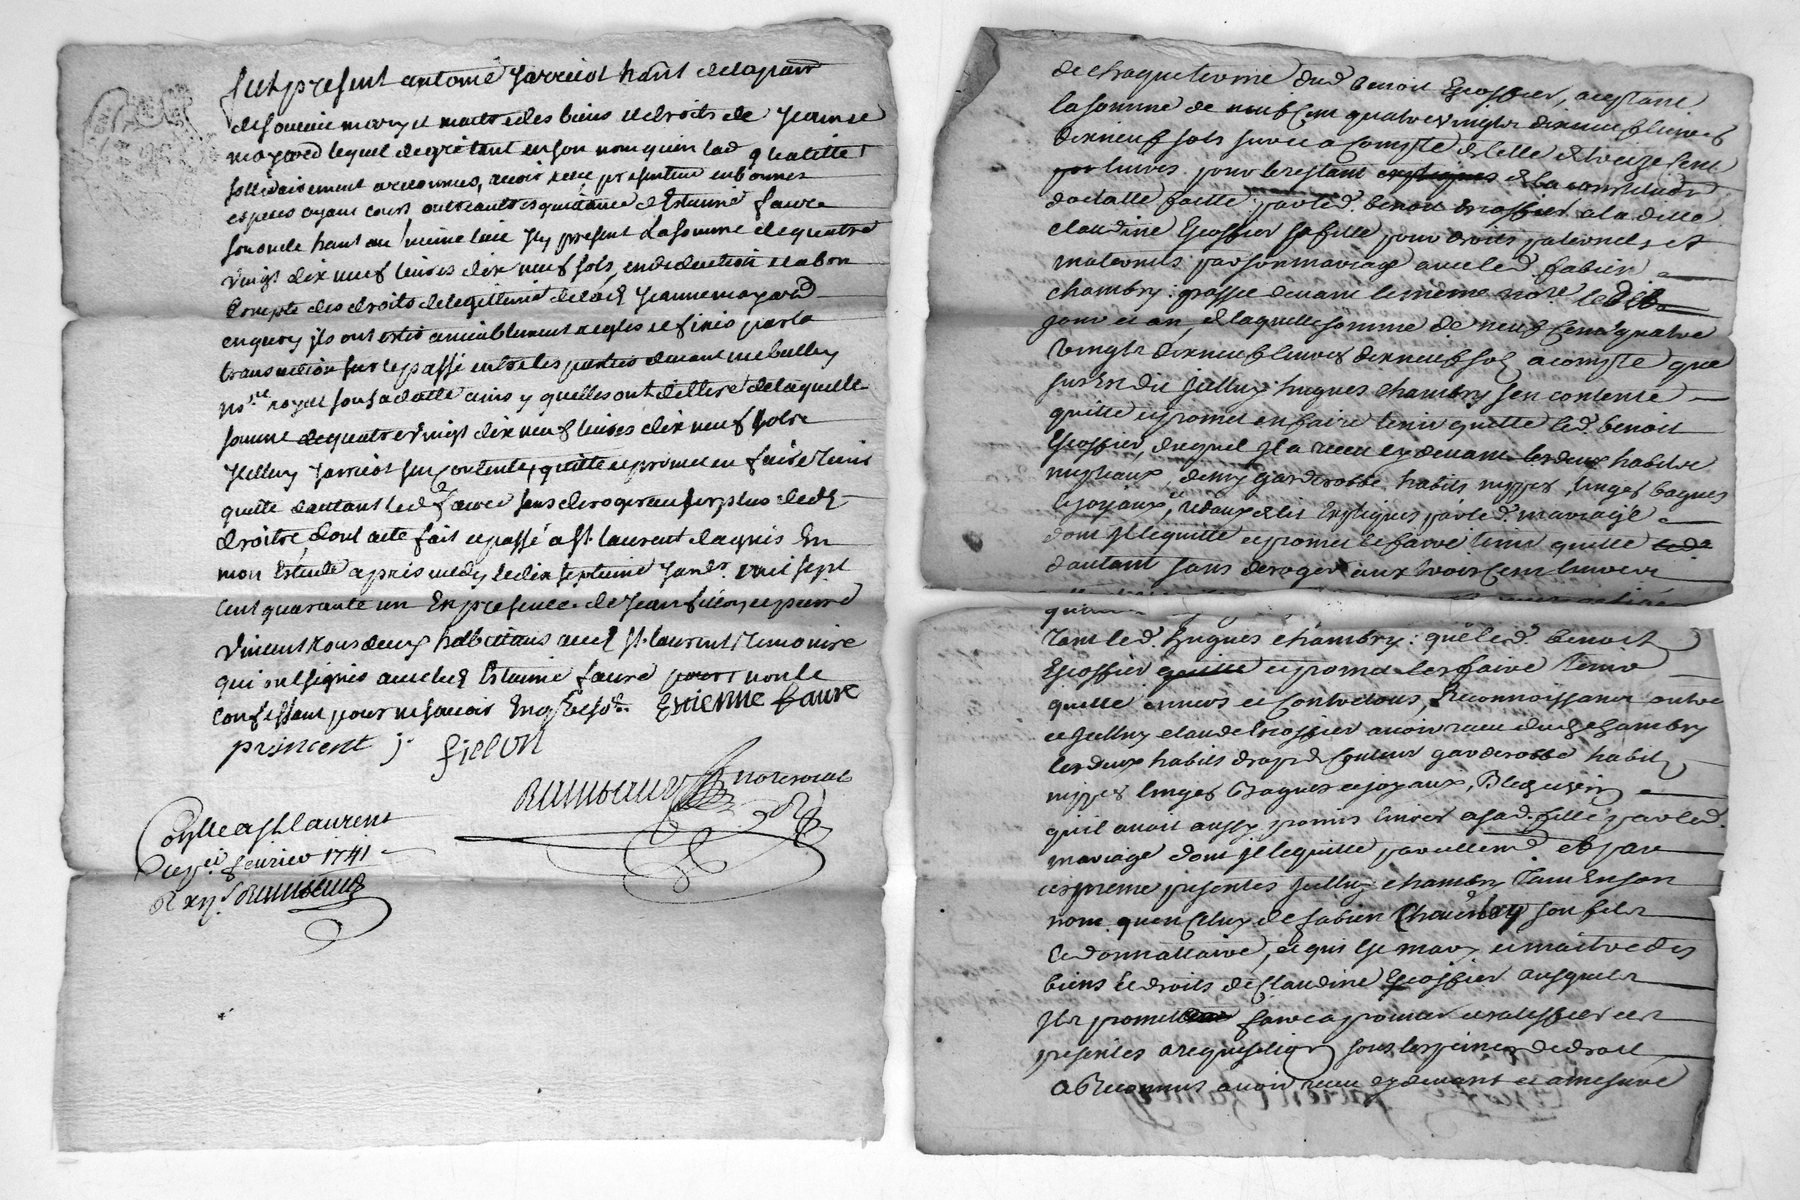 fut present antoine Jarricot hant de la parr
de soucieu mary et maitre des biens et droits de Jeanne
mayard lequel de gré tant en son nom quen lad qualitté
sollidairement a reconnu, avoir receu presentem en bonnes
especes ayant cours outre autres quittance d'Estienne faure
son oncle hant au meme lieu Jcy present La somme de quatre
vingt dix neuf livres dix neuf sols, en deduction et a bon
Compte des droits de legittime de lad Jeanne mayard
en quoy jls ont estés amiablement regles et fixés par la
transaction sur ce passé entre les parties devant me bully
nore royal sous sa datte ainsy quelles ont dit et de laquelle
somme de quatre vingt dix neuf livres dix neuf sols
Jcelluy Jarricot sen contente, quitte et promet en faire tenir
quitte dautant led faure sans deroger au surplus desd
droits, dont acte fait et passé a St laurent dagnis En
mon Estude apres midy le dix septieme Janvr mil sept
cent quarante un En presence de Jean fillon et pierre
vincent tous deux habitans aud St laurent temoins
qui ont signés avec led Estienne faure non le
confessant pour ne savoir Enquis et so. Estienne faure
princent j. fielon
Rambaud nore royal
Conlle a St laurent
le pr fevrier 1741
R xij s Rambaud
de chaque terme dud benoit Escoffier, aceptant
la somme de neuf cent quatre vingts dix neuf livres
dix neuf sols sur et a compte de celle de treize cent
livres pour le restant de la constitution
dotalle faitte par led. benoit Escoffier a la ditte
claudine Escoffier sa fille pour droits paternels et
maternels par son mariage avec led. fabien
chambry: passé devant le même nore
jour et an, de laquelle somme de neuf cent quatre
vingts dix neuf livres dix neuf sols a compte que
sus Est dit jcelluy hugues chambry sen contente
quitte et promet en faire tenir quitte led. benoit
Escoffier, duquel Jl a receu cy devant les deux habits
nuptiaux, demy garderobbe habits nippes, linges bagues
et joyaux, rideaux de lit Expliqués par led. mariage
dont Jl le quitte et promet le faire tenir quitte
dautant sans deroger aux trois cent livres
tant led. hugues chambry: que led. benoit
Escoffier et promet les faire tenir
quitte envers et contre tous, Reconnoissant outre
ce jcelluy claude Escoffier avoir receu dud chambry
les deux habits drap de couleur garderobbe habits
nippes linges bagues et joyaux, Bled et vin
quil avoit aussy promis livrer a sad. fille par led.
mariage dont jl le quitte pareillement et par
ces meme presentes jcelluy chambry tant En son
nom quen celluy de fabien Chambry son fils
Le donnattaire, et qui Est mary et maitre des
biens et droits de Claudine Escoffier ausquels
Jls faire aprouver et ratiffier ces
presentes a requisition sous les peines de droit
a Reconnus avoir receu cy devant et a mesure